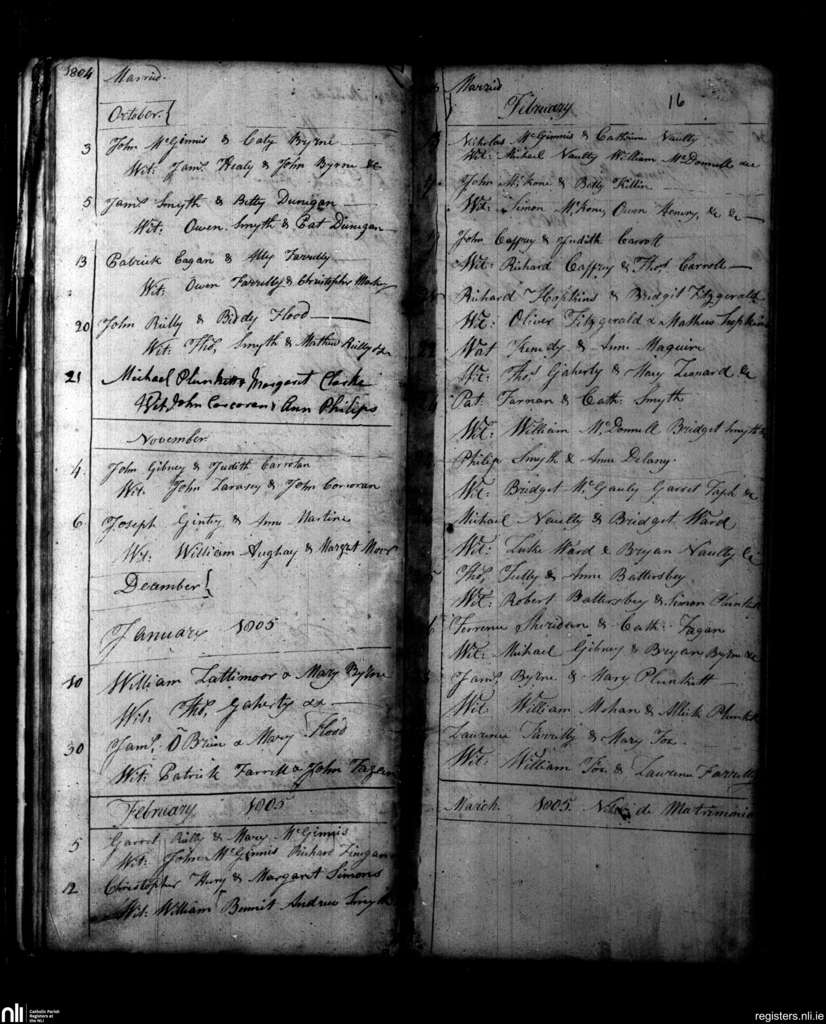 1804 Married.
October.
3 John McGinnis & Caty Byrne
Wit: Jams. Healy & John Byrne &c
5 Jams. Smyth & Betty Dunigan
Wit: Owen Smyth & Pat Dunigan
13 Patrick Eagan & Ally Farrelly
Wit: Owen Farrelly & Christopher
20 John Rielly & Biddy Flood
Wit: Thos. Smyth & Mathew Rielly &c
21 Michael Plunkett & Margaret Clarke
Wit John Corcoran & Ann Philips
November
4. John Gibney & Judith Carrolan
Wit. John & John Corcoran
6. Joseph Ginty & Ann Martine
Wit: William Aughay & Margt Moor
December
January 1805
10 William Lattimoor & Mary Byrne
Wit. Thos. Gaherty &c
30 Jams. O'Brien & Mary Flood
Wit: Patrick Farrell & John Fagan
February 1805
5 Garret Rielly & Mary McGinnis
Wit: John McGinnis Richard Finigan
12 Christopher & Margaret Simons
Wit: William Bennit Andrew Smyth
Married
February 16
Nicholas McGinnis & Catherine Naulty
Wit: Michael Naulty William McDonnell &c
John McKone & Betty Killin
Wit. Simon McKone, Owen &c &c
John Caffrey & Judith Carroll
Wit: Richard Caffrey & Thos. Carroll
Richard Hopkins & Bridgit Fitzgerald
Wit: Oliver Fitzgerald & Mathew Hopkins
Wat Kenedy & Anne Maguire
Wit: Thos. Gaherty & Mary Leonard &c
Pat Farnan & Cath. Smyth
Wit: William McDonnell Bridget Smyth &c
Philip Smyth & Anne Delany.
Wit: Bridget McGauly Garret &c
Michael Naulty & Bridget Ward
Wit: Luke Ward & Bryan Naulty &c
Thos. Tully & Anne Battersbey
Wit: Robert Battersbey & Simon Plunkett
Terrence Sheridan & Cath: Fagan
Wit: Michael Gibney & Bryan Byrne &c
Jams. Byrne & Mary Plunkett
Wit: William Mohan & Plunkett
Laurence Farrelly & Mary Fox
Wit: William Fox & Laurence Farrelly
March 1805 de Matrimonio
nli
Catholic Parish
Registers at
the NLI
registers.nli.ie